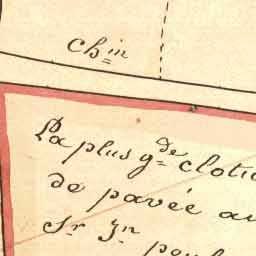 chin
La plus gde clotu
de pavée au
Sr Jn